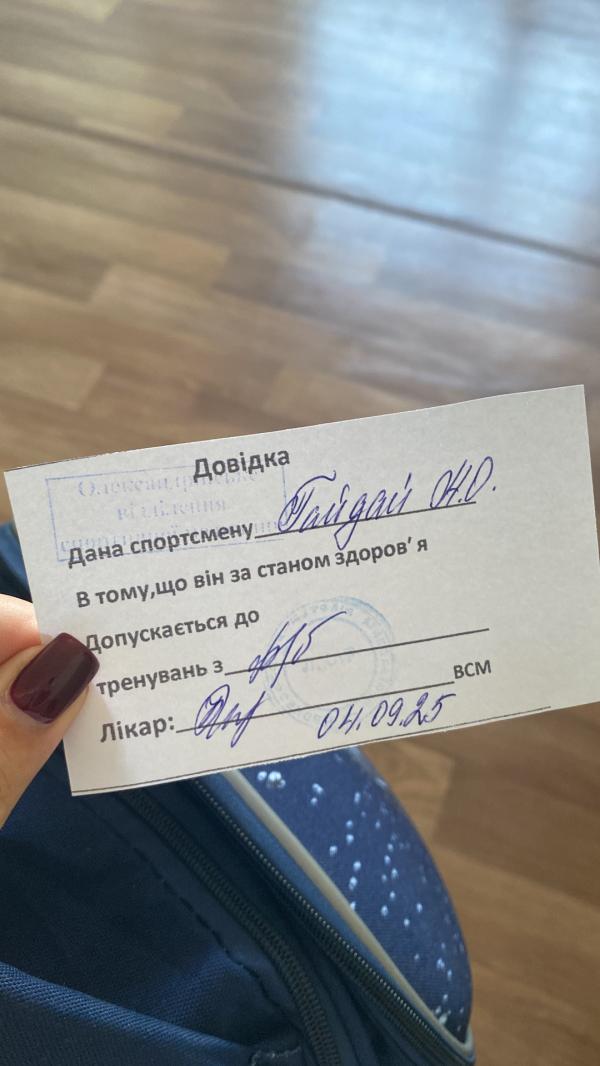 Довідка
Олександрівське
відділення
Дана спортсмену Гайдай Н.О.
В тому,що він за станом здоров'я
Допускається до
тренувань з б/б
Лікар: ВСМ
04.09.25